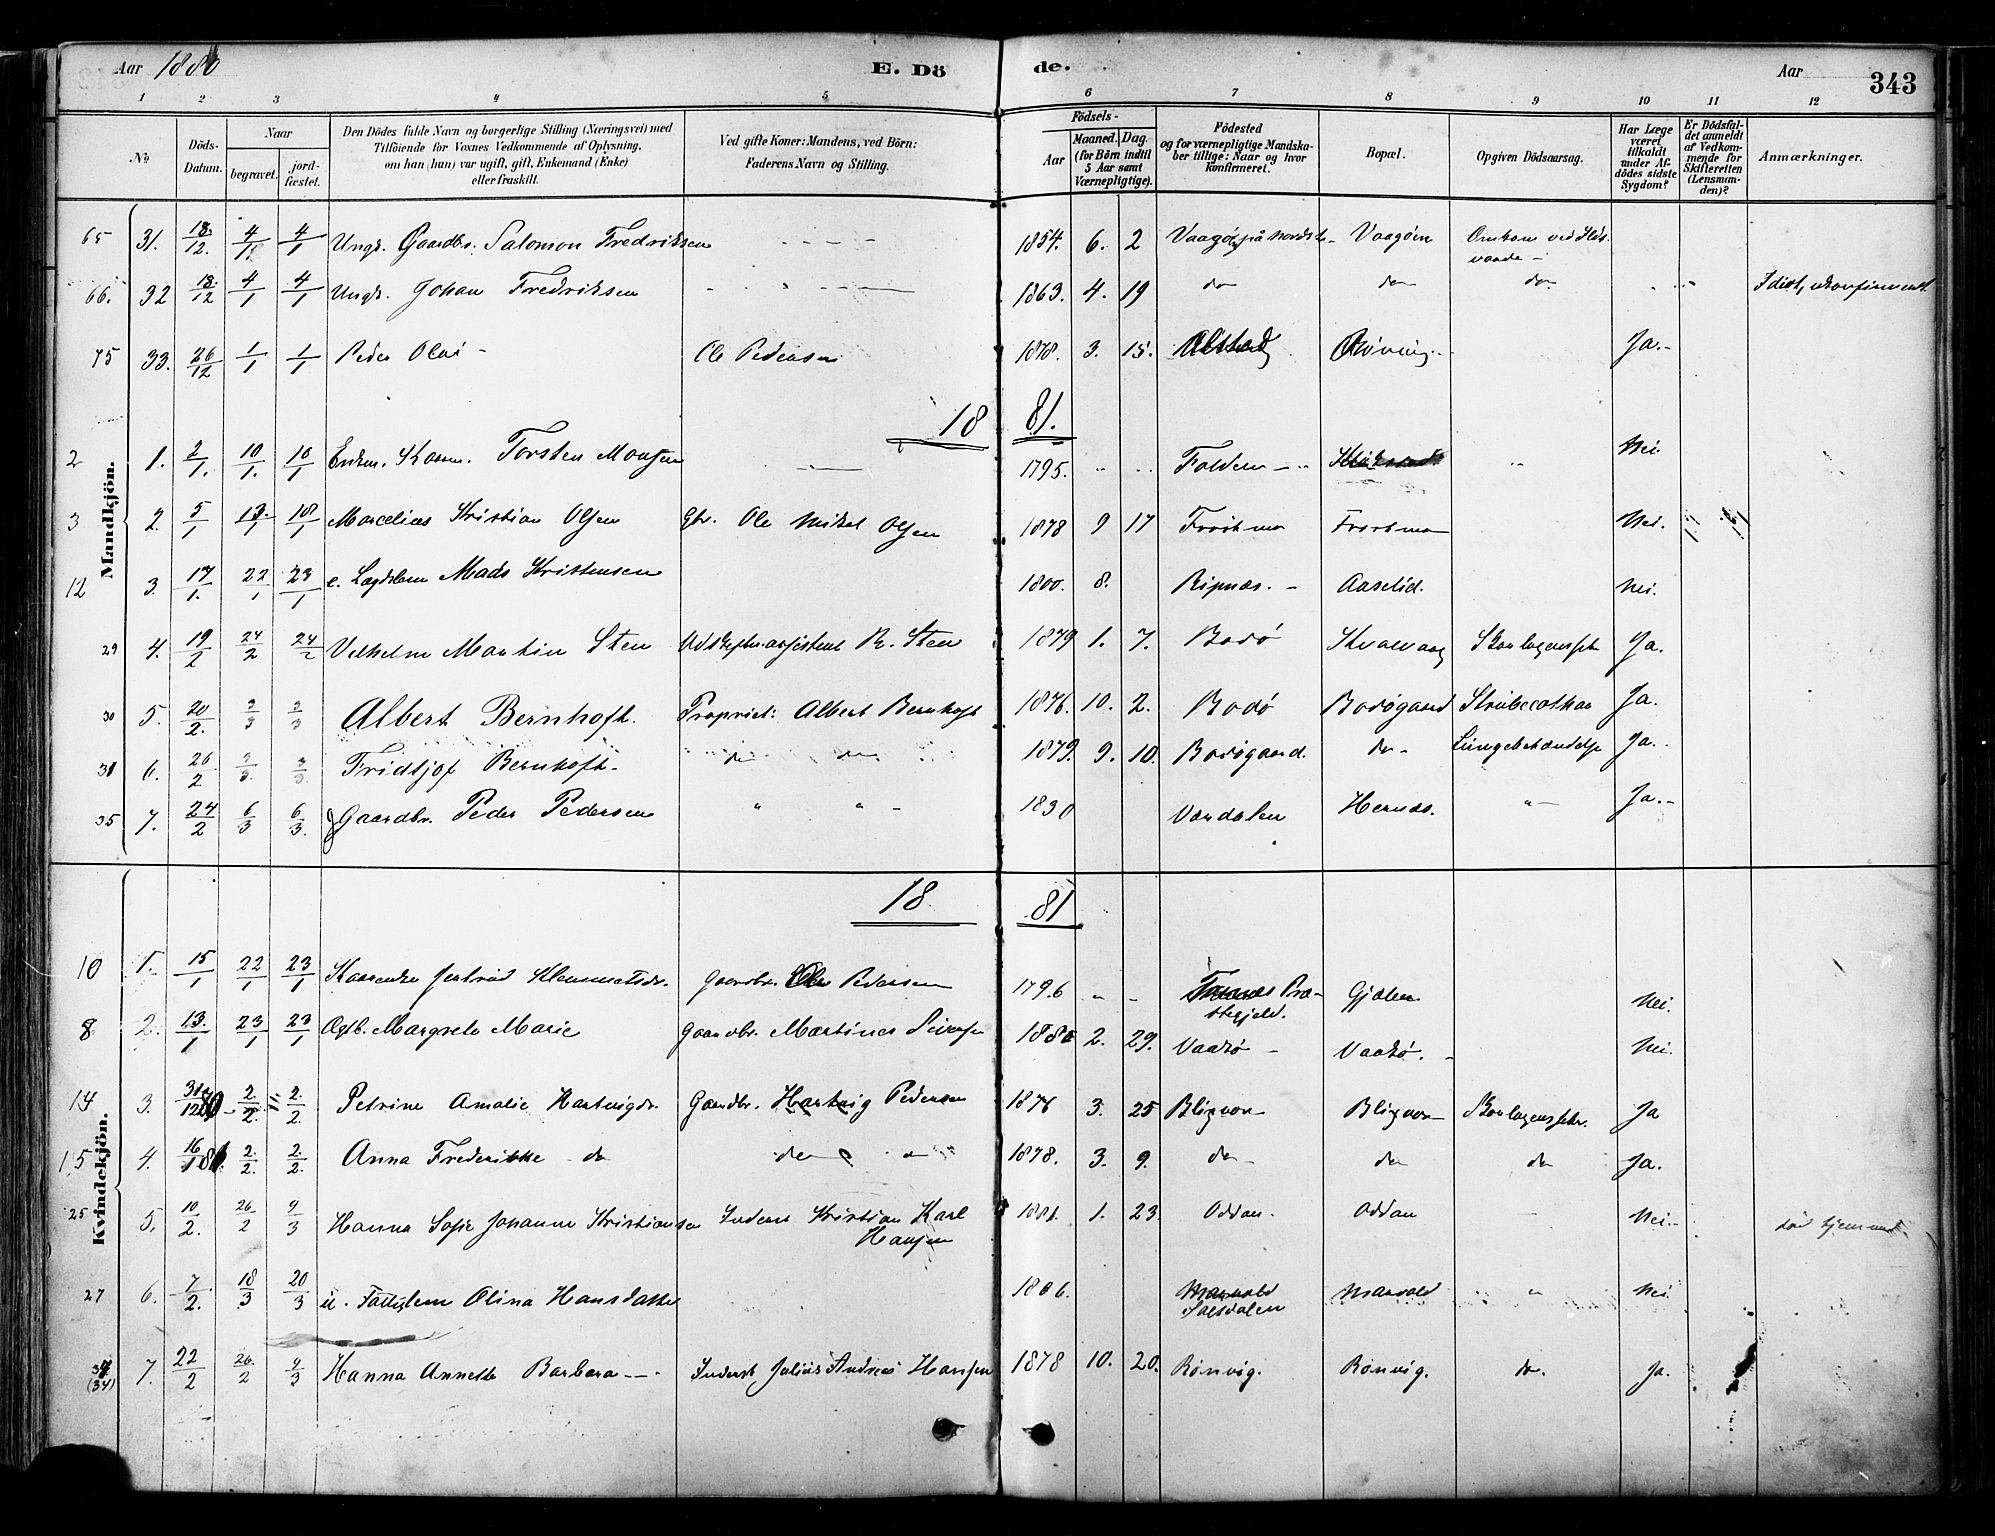 Aar 1880
E. Döde.
Aar
343
1 2 3 4 5 6 7 8 9 10 11 12
No
Döds-Datum.
Naar
begravet.
jord-fæstet.
Den Dödes fulde Navn og borgerlige Stilling (Næringsvei) med
Tilföiende for Voxnes Vedkommende af Oplysning,
om han (hun) var ugift, gift, Enkemand (Enke)
eller fraskilt.
Ved gifte Koner: Mandens, ved Börn:
Faderens Navn og Stilling.
Födsels-
Aar
Maaned. Dag.
(for Börn indtil
5 Aar samt
Værnepligtige).
Födested
og for værnepligtige Mandska-
ber tillige: Naar og hvor
konfirmeret.
Bopæl.
Opgiven Dödsaarsag.
Har Læge
været
tilkaldt
under Af-
dödes sidste
Sygdom?
Er Dödsfal-
det anmeldt
af Vedkom-
mende for
Skifteretten
(Lensman-
den)?
Anmærkninger.
Mandkjön.
65 31. 18/12 4/1 4/1 Ungk. Gaardbr. Salomon Fredriksen 1854. 6. 2 Vaagø Vaagøen Omkom ved
66. 32 18/12 4/1 4/1 Ungk. Johan Fredriksen 1863. 4. 19 do do do Idiot, ukonfirmert
75 33. 26/12 1/1 1/1 Peder Olai Ole Pedersen 1878. 3. 15. Alstad Ja.
18 81.
2 1. 2/1. 10/1. 10/1 Enkem. Torsten Monsen 1795. Folden Nei
3 2. 5/1 13/1 18/1 Marcelius Kristian Olsen Gbr. Ole Mikal Olsen 1878 9 17 Nei.
12 3. 17/1. 22/1 23/1 e. Lægdslem Mads Kristensen 1800. 8. Ripnæs. Aaselid. Nei.
29 4. 19/2 24/2 24/2 Vilhelm Martin Sten Sten 1879 1. 7. Bodø Kvalvaag Skarlagensfeb Ja.
30 5. 20/2. 3/3 3/3 Albert Bernhoft. Propriet: Albert Bernhoft 1876. 10. 2. Bodø Bodøgaard Ja.
31 6. 26/2 3/3. 3/3. Fridtjof Bernhoft. do do 1879. 9. 10. Bodøgaard. do Lungebetændelse Ja.
35 7. 24/2 6/3 6/3. Gaardbr. Peder Pedersen 1830 Vardalen Hernæs. Ja.
18 81
Kvindekjön.
10 1. 15/1 22/1 23/1 Klemmetsdr. Gaardbr. Ole Pedersen 1796 Præstegjeld. Gjælen Nei.
8 2. 13/1 23/1 23/1 Margrete Marie Gaardbr. Martinus 1880 2. 29. Nei.
14 3. 31/12 80 2/2. 2/2. Petrine Amalie Hartvigdr. Gaardbr. Hartvig Pedersen 1876 3. 25 Bligvær Bligvær Skarlagensfeber. Ja
15 4. 16/1 81. 2/2. 2/2. Anna Frederikke do do 1878. 3. 9. do do do Ja.
25 5. 10/2. 26/2 9/3 Hanna Sofie Johanne Kristiansen Inderst Kristian Karl
Hansen 1881. 1. 23. Oddan. Oddan Nei.
27 6. 7/2. 18/3 20/3 u. Fattiglem Olina Hansdatter 1806. Marvold
Saltdalen Marvold Nei
(34) 7. 22/2 26./2 9/3 Hanna Annette Barbara Inderst Julius Andreas Hansen 1878 10. 20. Rønvig. Rønvig. do. Ja.